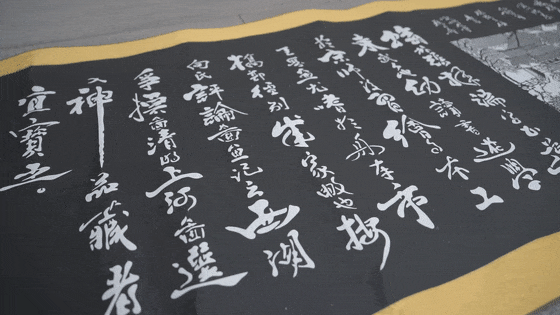 翰林張擇端字正道
東武人也幼讀書遊學
於京師後習繪事本工
其界畫尤嗜於舟車市
橋郭徑別成家數也按
向氏評論圖畫記云西湖
爭標圖清明上河圖選
入神品藏者
宜寶之